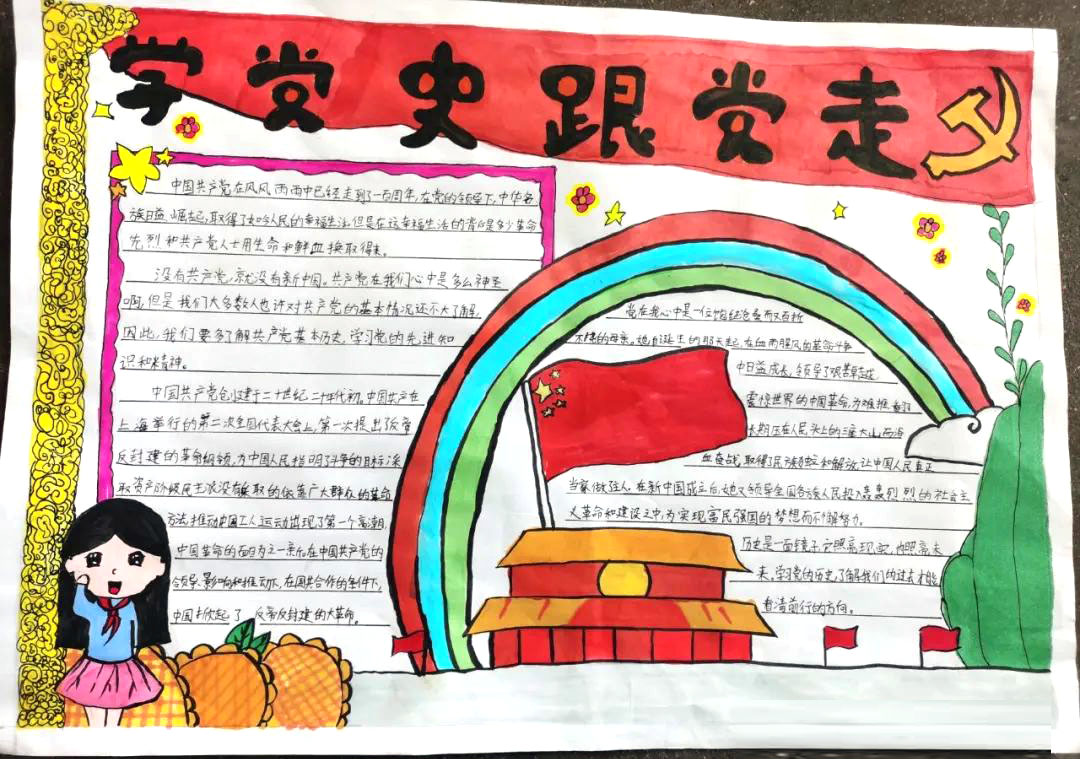 学党史跟党走
中国共产党在风风雨雨中已经走到了一百周年,在党的领导下,中华各
族日益崛起,取得了如今人民的幸福生活,但是在这幸福生活的背后是多少革命
先烈和共产党人士用生命和鲜血换取得来。
没有共产党,就没有新中国。共产党在我们心中是多么神圣
啊,但是我们大多数人也许对共产党的基本情况还不大了解,
因此,我们要多了解共产党基本历史,学习党的先进知
识和精神。
中国共产党创建于二十世纪二十年代初。中国共产在
上海举行的第二次全国代表大会上,第一次提出反帝
反封建的革命纲领,为中国人民指明了斗争的目标采
取资产阶级民主派没有采取的依靠广大群众的革命
方法,推动中国工人运动出现了第一个高潮,
中国革命的面目为之一亲。在中国共产党的
领导、影响和推动下,在国共合作的条件下,
中国掀起了反帝反封建的大革命。
党在我心中是一位饱经沧桑而又百折
不挠的母亲。她自诞生的那天起,在血雨腥风的革命斗争
中日益成长,领导了艰苦卓越
震惊世界的中国革命,为难推翻
长期压在人民头上的三座大山而浴
血奋战,取得了民族独立和解放,让中国人民真正
当家做主人。在新中国成立后,她又领导全国各族人民投入轰轰烈烈的社会主
义革命和建设之中,为实现富民强国的梦想而不懈努力。
历史是一面镜子,它照亮现实,也照亮未
来。学习党的历史,了解我们的过去,才能
看清前行的方向。